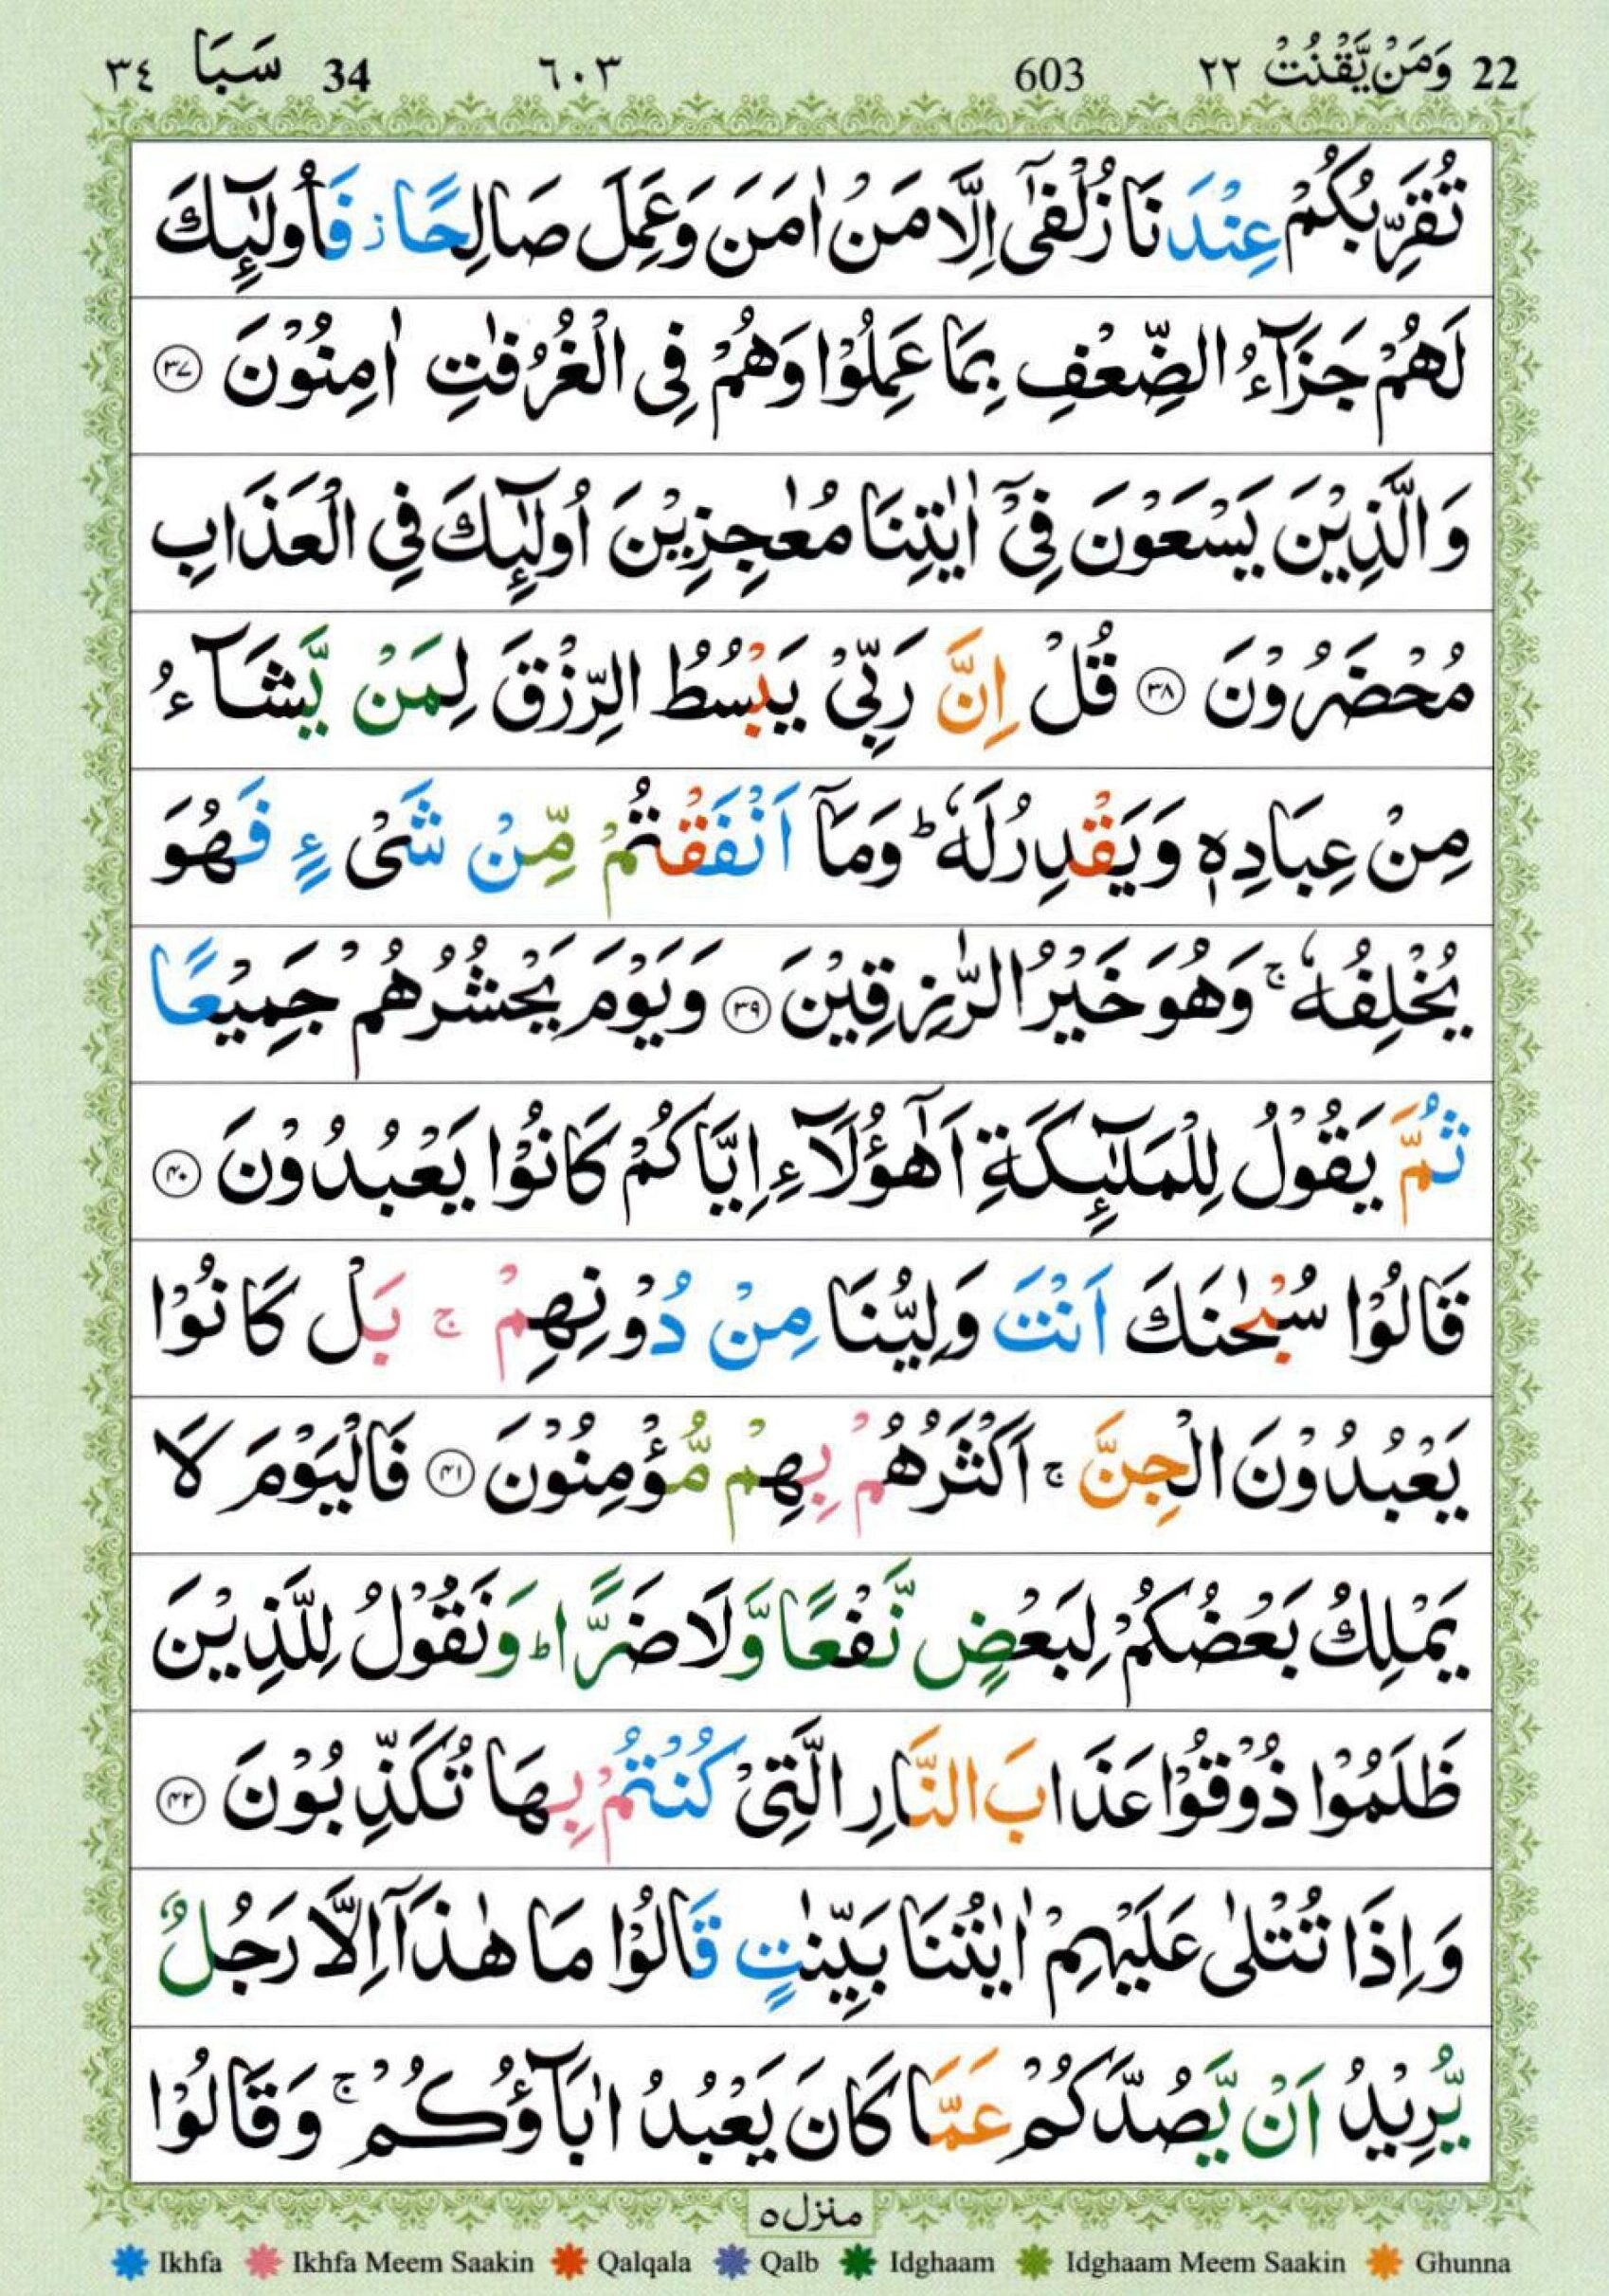 22 وَمَنْ يَّقْنُتْ ٢٢ 603 ٦٠٣ 34 سَبَا ٣٤
تُقَرِّبُكُمْ عِنْدَنَا زُلْفٰۤى اِلَّا مَنْ اٰمَنَ وَعَمِلَ صَالِحًا ز فَاُولٰٓئِكَ
لَهُمْ جَزَآءُ الضِّعْفِ بِمَا عَمِلُوْا وَهُمْ فِى الْغُرُفٰتِ اٰمِنُوْنَ ﴿٣٧﴾
وَالَّذِيْنَ يَسْعَوْنَ فِىْۤ اٰيٰتِنَا مُعٰجِزِيْنَ اُولٰٓئِكَ فِى الْعَذَابِ
مُحْضَرُوْنَ ﴿٣٨﴾ قُلْ اِنَّ رَبِّىْ يَبْسُطُ الرِّزْقَ لِمَنْ يَّشَآءُ
مِنْ عِبَادِهٖ وَيَقْدِرُ لَهٗ ؕ وَمَاۤ اَنْفَقْتُمْ مِّنْ شَىْءٍ فَهُوَ
يُخْلِفُهٗ ۚ وَهُوَ خَيْرُ الرّٰزِقِيْنَ ﴿٣٩﴾ وَيَوْمَ يَحْشُرُهُمْ جَمِيْعًا
ثُمَّ يَقُوْلُ لِلْمَلٰٓئِكَةِ اَهٰٓؤُلَآءِ اِيَّاكُمْ كَانُوْا يَعْبُدُوْنَ ﴿٤٠﴾
قَالُوْا سُبْحٰنَكَ اَنْتَ وَلِيُّنَا مِنْ دُوْنِهِمْ ۚ بَلْ كَانُوْا
يَعْبُدُوْنَ الْجِنَّ ۚ اَكْثَرُهُمْ بِهِمْ مُّؤْمِنُوْنَ ﴿٤١﴾ فَالْيَوْمَ لَا
يَمْلِكُ بَعْضُكُمْ لِبَعْضٍ نَّفْعًا وَّلَا ضَرًّا ؕ وَنَقُوْلُ لِلَّذِيْنَ
ظَلَمُوْا ذُوْقُوْا عَذَابَ النَّارِ الَّتِىْ كُنْتُمْ بِهَا تُكَذِّبُوْنَ ﴿٤٢﴾
وَاِذَا تُتْلٰى عَلَيْهِمْ اٰيٰتُنَا بَيِّنٰتٍ قَالُوْا مَا هٰذَاۤ اِلَّا رَجُلٌ
يُّرِيْدُ اَنْ يَّصُدَّكُمْ عَمَّا كَانَ يَعْبُدُ اٰبَآؤُكُمْ ۚ وَقَالُوْا
منزل ٥
Ikhfa Ikhfa Meem Saakin Qalqala Qalb Idghaam Idghaam Meem Saakin Ghunna